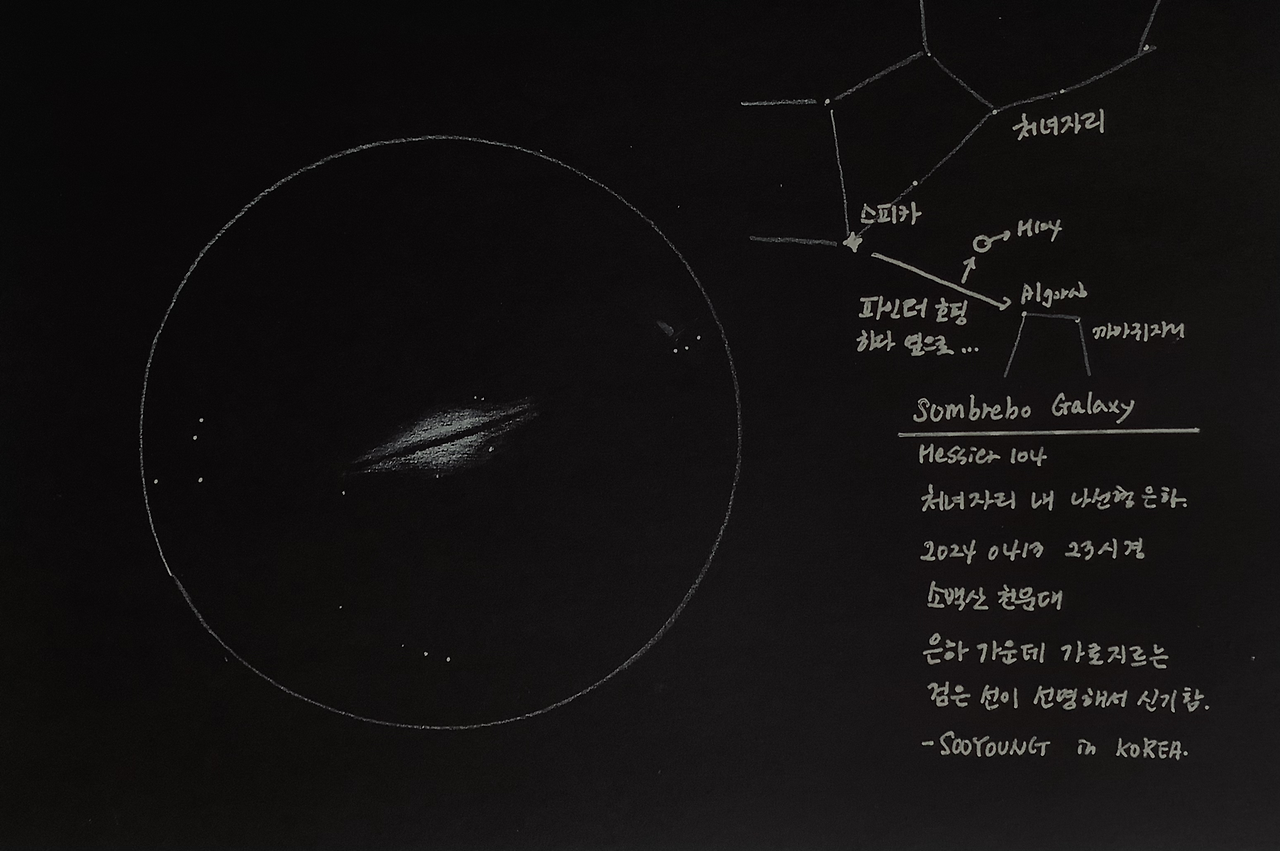 처녀자리
스피카
M104
Algorab
파인더 호핑
하다 옆으로...
까마귀자리
Sombrebo Galaxy
Messier 104
처녀자리 내 나선형은하.
2024 0413 23시경
소백산 천문대
은하 가운데 가로지르는
검은 선이 선명해서 신기함.
-SOOYOUNG in KOREA.